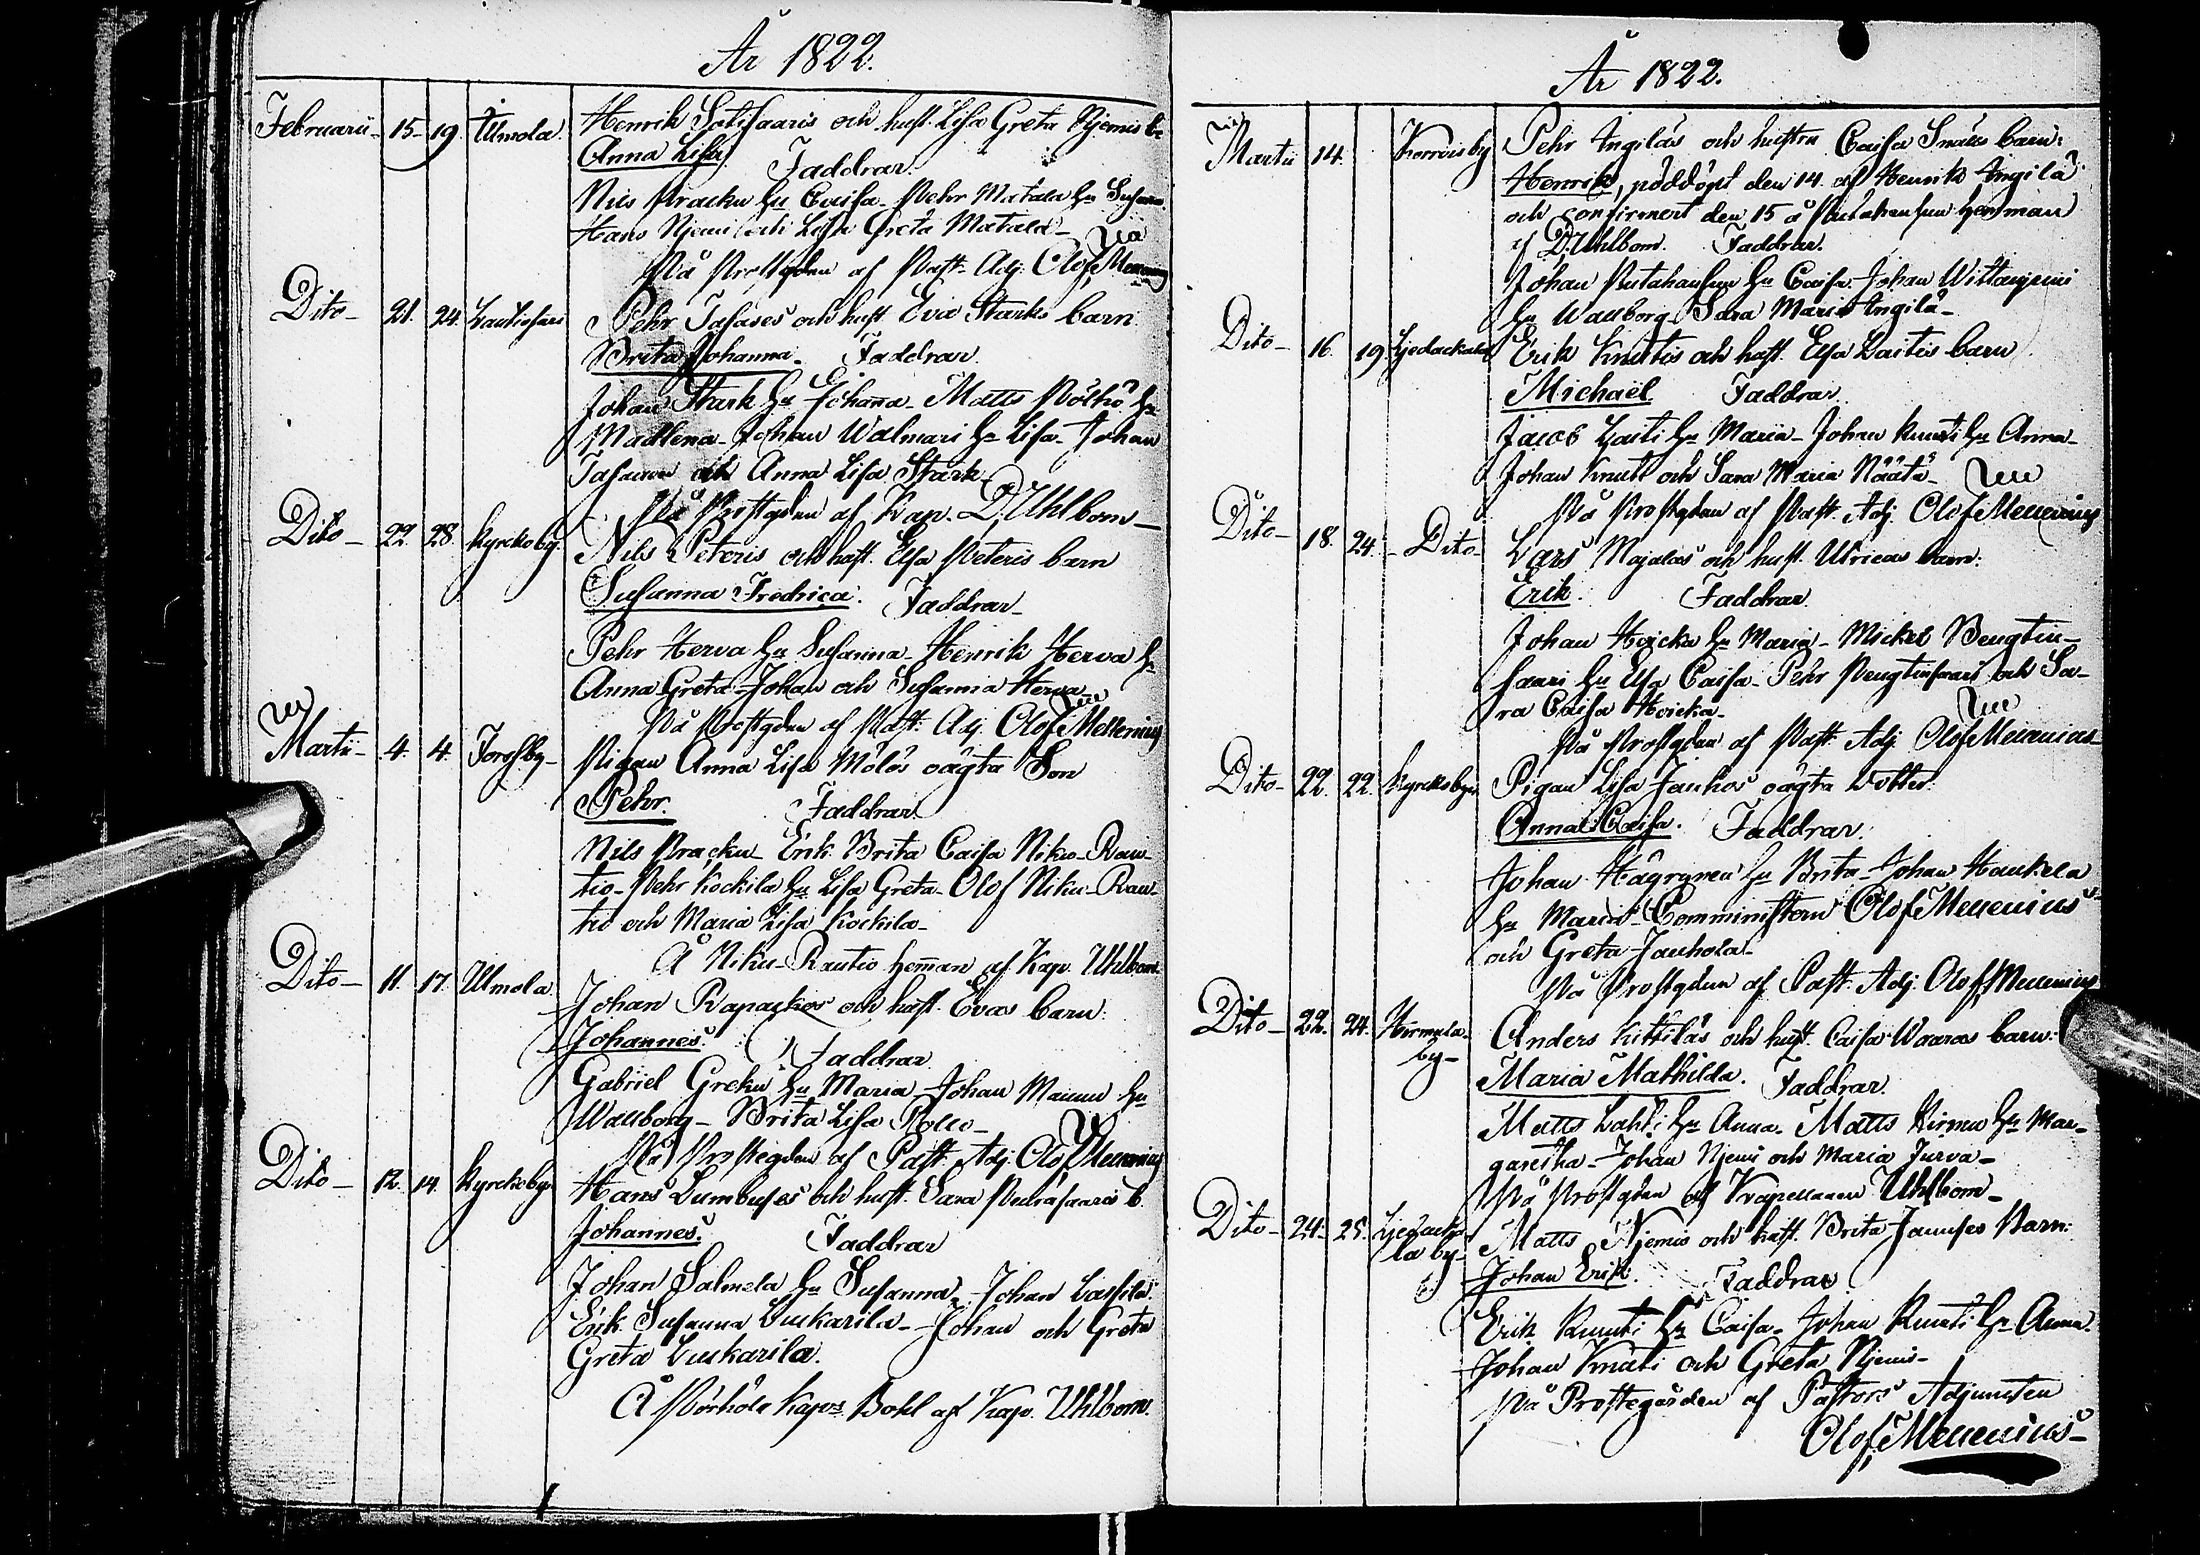 År 1822.
Februarii - 15 - 19. Ulmola. Henrik Sotisaaris och hust. Lisa Greta Njemis b.
Anna Lisa. Faddrar.
Nils Pracku hu Caisa - Pehr Matala hu Susanna
Hans Njemi och Lisa Greta Matala -
På Prostgden af Past. Adj. Olof Mellenius
Dito - 21. 24. Lautiosaari Pehr Tasases och hust Eva Starks barn
Brita Johanna. Faddrar.
Johan Stark hu Johanna - Matts hu
Madlena - Johan Walmari hu Lisa - Johan
och Anna Lisa Stark
På Prostgden af Kap. D. Uhlbom -
Dito - 22. 28. Kyrckoby. Nils Peteris och hust. Elsa Peteris barn
Susanna Fredrica. Faddrar -
Pehr Herva hu Susanna - Henrik Herva hu
Anna Greta - Johan och Susanna Herva -
På Prostgden af Past. Adj. Olof Mellenius
Martii - 4. 4. Torfby - Pigan Anna Lisa oägta Son
Pehr. Faddrar.
Nils Pracku - Erik Brita Caisa Niku-Rau-
tio - Pehr Kockila hu Lisa Greta - Olof Niku-Rau-
tio och Maria Lisa Kockila -
Å Niku-Rautio heman af Kap. Uhlbom.
Dito - 11. 17. Ulmola Johan Rapackos och hust. Evas barn:
Johannes. Faddrar.
Gabriel Greku hu Maria - Johan hu
Wallborg - Brita Lisa
På Prostegden af Past. Adj. Olof Mellenius
Dito - 12. 14. Kyrckoby Hans Lumbuses och hust. Sara b.
Johannes. Faddrar
Johan Salmela hu Susanna - Johan Lassila
Erik Susanna Luukarila - Johan och Greta
Greta Luukarila.
Å Bohl af Kap. Uhlbom.
År 1822.
Martii 14. Korvaby Pehr Angilas och hustru Caisa barn:
Henrik, nöddöpt den 14 af Henrik Angilä
och confirmert den 15 å heman
af D. Uhlbom. Faddrar.
Johan hu Caisa - Johan
hu Wallborg - Sara Maria Angilä -
Dito - 16. 19. Erik Knutis och hust. Elsa Laitis barn
Michaël Faddrar.
Jacob Laiti hu Maria - Johan Knuti hu Anna -
Johan Knuti och Sara Maria Näätä -
På Prostgden af Past. Adj. Olof Mellenius
Dito - 18. 24. - Dito - Lars Majalas och hust. Ulricas barn:
Erik. Faddrar.
Johan Hoicka hu Maria - Mickel Bengtin-
saari hu Elsa Caisa - Pehr Pengtinsaari och Sa-
ra Caisa Hoicka -
På Prostgden af Past. Adj. Olof Mellenius -
Dito - 22. 22. Kyrckoby Pigan Lisa Jankos oägta dotter:
Anna Caisa. Faddrar.
Johan Hägrynen hu Brita - Johan Haukela
hu Maria - Comministern Olof Mellenius
och Greta Jauhola -
På Prostgden af Past. Adj. Olof Mellenius
Dito - 22. 24. Hirmula
by - Anders Kittiläs och hust. Caisa Waaras barn:
Maria Mathilda. Faddrar.
Matts Lahti hu Anna - Matts Hirmu hu Mar-
garetha - Johan Njemi och Maria Jurva -
På Prostgden af Krapellanen Uhlbom -
Dito - 24. 25. Liedackka-
la by - Matts Njemis och hust. Brita Jauises Barn:
Johan Erik. Faddrar
Erik Knuti hu Caisa - Johan Knuti hu Anna.
Johan Knuti och Greta Njemi -
På Prostegården af Pastors Adjuncten
Olof Mellenius -